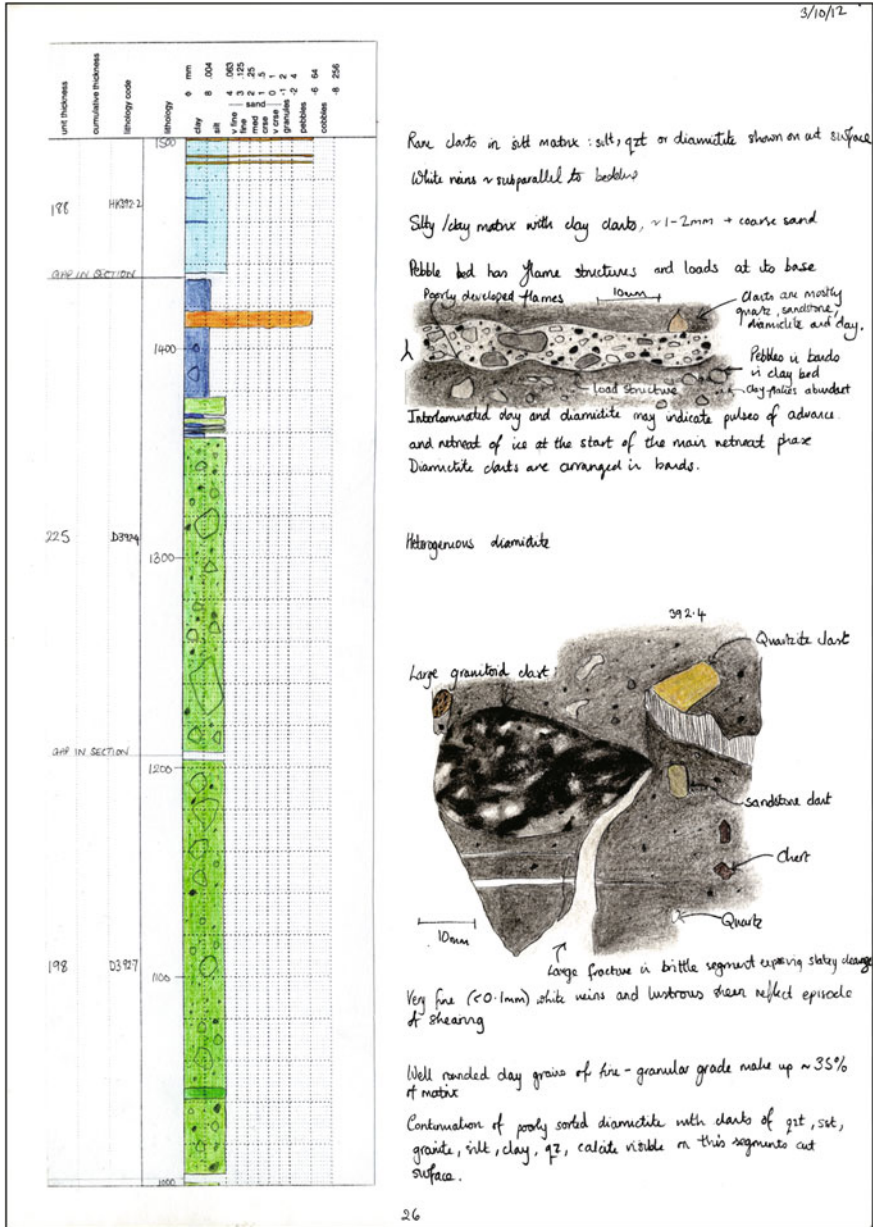 3/10/12
unit thickness
cumulative thickness
lithology code
lithology
ϕ mm
clay 8 .004
silt
sand
v fine 4 .063
fine 3 .125
med 2 .25
crse 1 .5
v crse 0 1
granules -1 2
pebbles -2 4
cobbles -6 64
-8 256
1500
Rare clasts in silt matrix : silt, qzt or diamictite shown on cut surface
White veins ~ subparallel to bedding
188
HK392.2
Silty/clay matrix with clay clasts, ~1-2mm + coarse sand
GAP IN SECTION
Pebble bed has flame structures and loads at its base
Poorly developed flames
10mm
Clasts are mostly
quartz, sandstone,
diamictite and clay.
1400
Pebbles in bands
in clay bed
Load structure
Clay flakes abundant
Interlaminated clay and diamictite may indicate pulses of advance
and retreat of ice at the start of the main retreat phase
Diamictite clasts are arranged in bands.
225
D392.4
1300
Heterogenous diamictite
392.4
Quartzite clast
Large granitoid clast
GAP IN SECTION
1200
sandstone clast
Chert
Quartz
10mm
Large fracture in brittle segment exposing slatey cleavage
198
D3927
1100
Very fine (<0.1mm) white veins and lustrous sheen reflect episode
of shearing
Well rounded clay grains of fine - granular grade make up ~35%
of matrix
Continuation of poorly sorted diamictite with clasts of qzt, sst,
granite, silt, clay, qz, calcite visible on this segments cut
surface.
1000
26